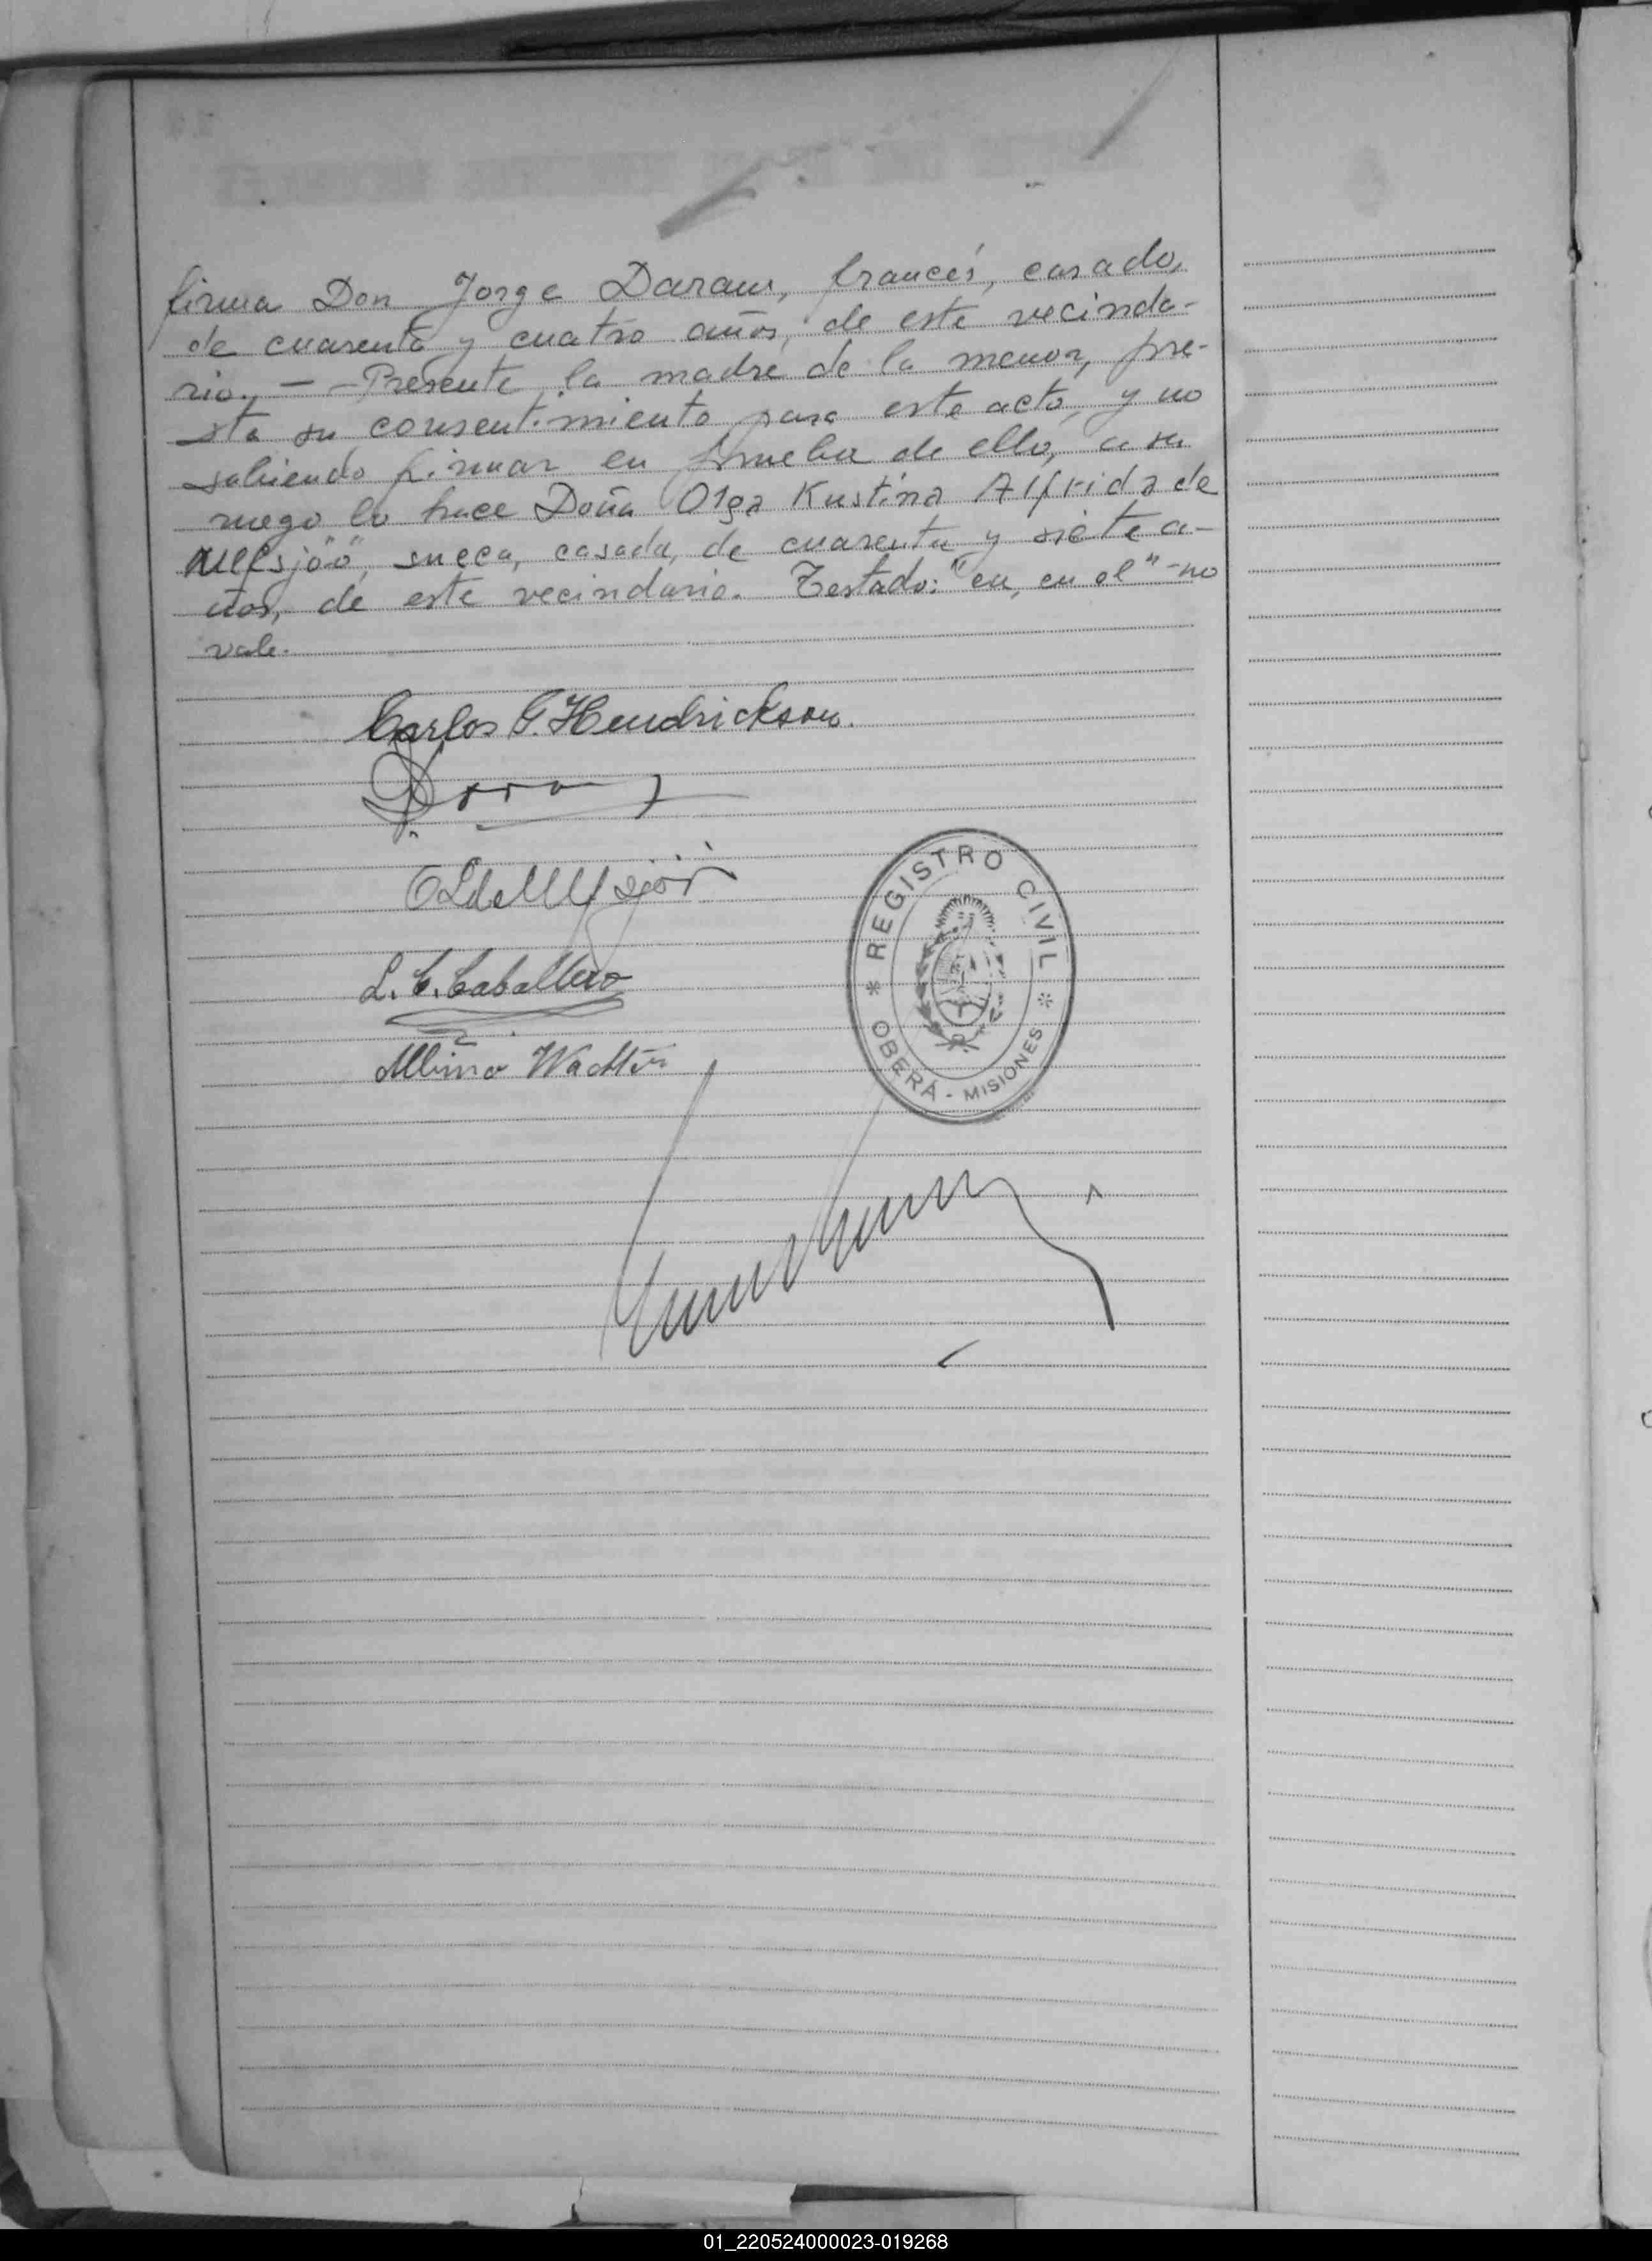 firma Don Jorge Daram, francés, casado,
de cuarenta y cuatro años, de este vecinda-
rio. — - Presente la madre de la menor, pre-
sta su consentimiento para este acto, y no
sabiendo firmar en prueba de ello, a su
ruego lo hace Doña Olga Kustina Alfrida de
sueca, casada, de cuarenta y siete a-
ños, de este vecindario. Testado: "en, en el" - no
vale.
Carlos G. Hendrickson.
L. C. Caballero
REGISTRO CIVIL
OBERÁ - MISIONES
01_220524000023-019268